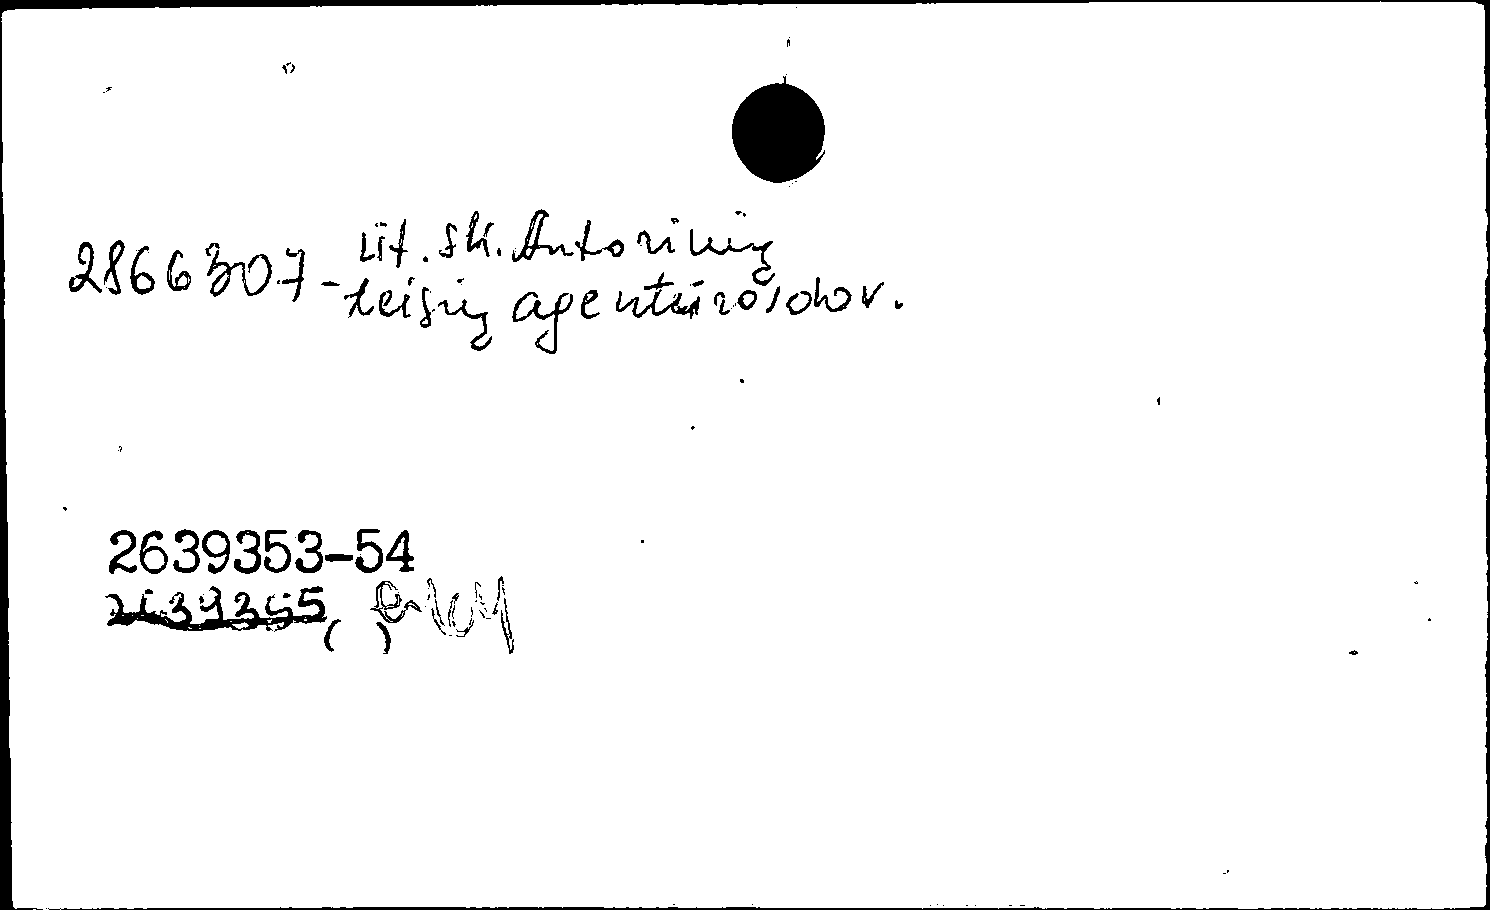 2866307- Lit. sk. Autorinių
teisių agentūros dov.
2639353-54
2639355 ( )